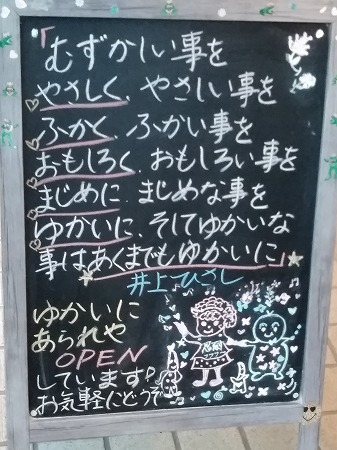 「むずかしい事を
やさしく、やさしい事を
ふかく、ふかい事を
おもしろく、おもしろい事を
まじめに、まじめな事を
ゆかいに、そしてゆかいな
事はあくまでもゆかいに」
井上ひさし
ゆかいに
あられや
OPEN
しています♪
お気軽にどうぞ